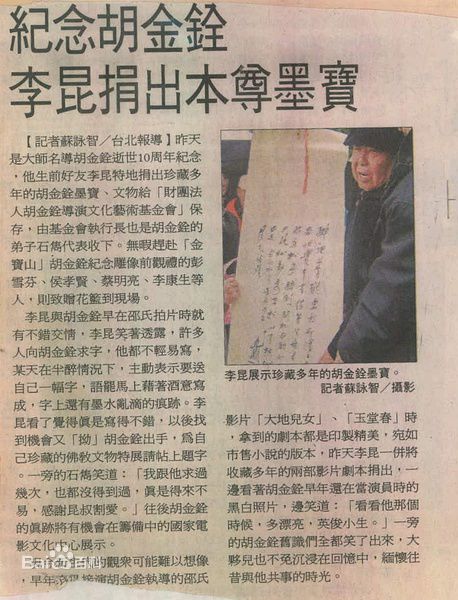 紀念胡金銓
李昆捐出本尊墨寶
【記者蘇詠智／台北報導】昨天
是大師名導胡金銓逝世10周年紀念
，他生前好友李昆特地捐出珍藏多
年的胡金銓墨寶、文物給「財團法
人胡金銓導演文化藝術基金會」保
存，由基金會執行長也是胡金銓的
弟子石雋代表收下。無暇趕赴「金
寶山」胡金銓紀念雕像前觀禮的彭
雪芬、侯孝賢、蔡明亮、李康生等
人，則致贈花籃到現場。
李昆與胡金銓早在邵氏拍片時就
有不錯交情，李昆笑著透露，許多
人向胡金銓求字，他都不輕易寫，
某天在半醉情況下，主動表示要送
自己一幅字，語罷馬上藉著酒意寫
成，字上還有墨水亂滴的痕跡。李
昆看了覺得真是寫得不錯，以後找
到機會又「拗」胡金銓出手，為自
己珍藏的佛教文物特展請帖上題字
。一旁的石雋笑道：「我跟他求過
幾次，也都沒得到過，真是得來不
易，感謝昆叔割愛。」往後胡金銓
的真跡將有機會在籌備中的國家電
影文化中心展示。
的觀眾可能難以想像
，早年
演胡金銓執導的邵氏
李昆展示珍藏多年的胡金銓墨寶。
記者蘇詠智／攝影
影片「大地兒女」、「玉堂春」時
，拿到的劇本都是印製精美，宛如
市售小說的版本，昨天李昆一併將
收藏多年的兩部影片劇本捐出，一
邊看著胡金銓早年還在當演員時的
黑白照片，邊笑道：「看看他那個
時候，多漂亮，英俊小生。」一旁
的胡金銓舊識們全都笑了出來，大
夥兒也不免沉浸在回憶中，緬懷往
昔與他共事的時光。
Baidu百科